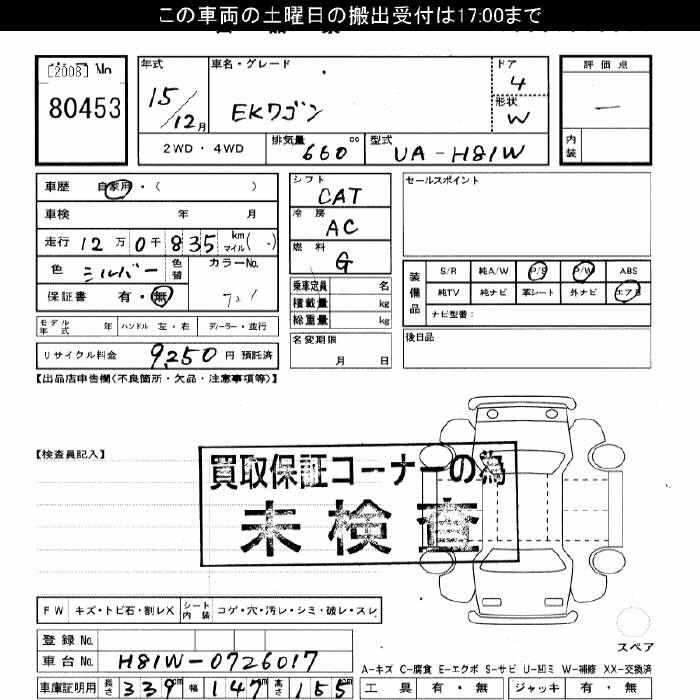 この車両の土曜日の搬出受付は17:00まで
[2008] No
80453
年式 15/12月
車名・グレード EKワゴン
ドア 4
形状 W
評価点 —
内装
2WD・4WD
排気量 660 cc
型式 UA-H81W
車歴 自家用・( )
車検 年 月
走行 12万0千835 km マイル( )
色 シルバー 色替 カラーNo.
保証書 有・無
モデル年式 年 ハンドル 左・右 ディーラー・並行
リサイクル料金 9,250 円 預託済
シフト CAT
冷房 AC
燃料 G
乗車定員 名
積載量 kg
総重量 kg
名変期限 月 日
セールスポイント
装備品 S/R 純A/W P/S P/W ABS
純TV 純ナビ 革シート 外ナビ エアB
ナビ型番:
後日品
【出品店申告欄(不良箇所・欠品・注意事項等)】
【検査員記入】
買取保証コーナーの為
未検査
FW キズ・トビ石・割レX シート内装 コゲ・穴・汚レ・シミ・破レ・スレ
登録No.
車台No. H81W-0726017
車庫証明用 長さ 339cm 幅 147cm 高さ 155cm
スペア
A-キズ C-腐食 E-エクボ S-サビ U-凹ミ W-補修 XX-交換済
工具 有・無 ジャッキ 有・無